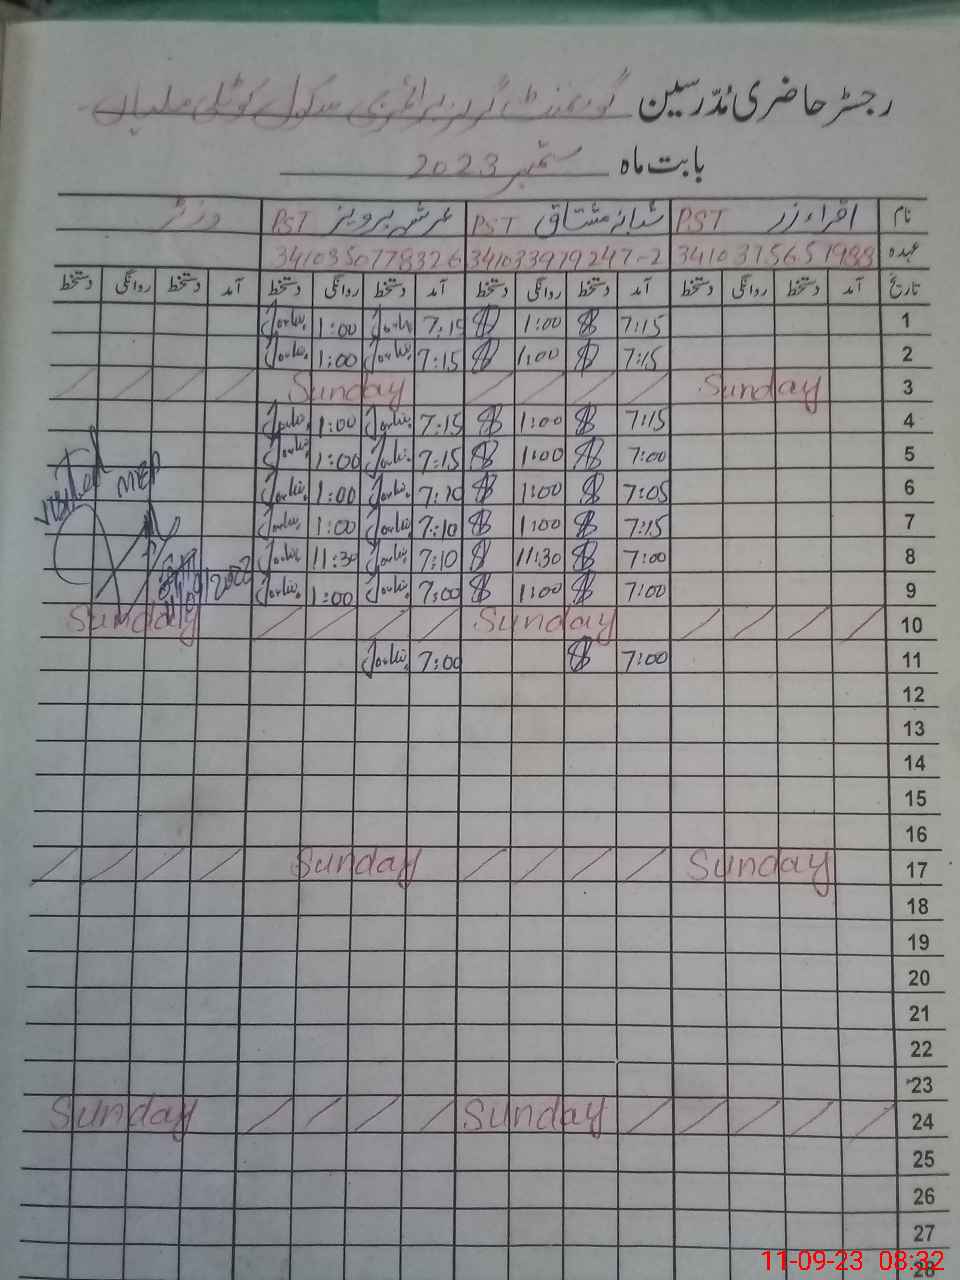 رجسٹر حاضری مُدّرسین گورنمنٹ گرلز پرائمری سکول کوٹلی ملیاں
بابت ماہ ستمبر 2023
نام اقراء زر PST شبانہ مشتاق PST عرشہ پرویز PST وزٹر
عہدہ 3410375651988 341033979247-2 3410350778326
تاریخ آمد دستخط روانگی دستخط آمد دستخط روانگی دستخط آمد دستخط روانگی دستخط آمد دستخط روانگی دستخط
1 7:15 1:00 7:15 1:00
2 7:15 1:00 7:15 1:00
3 Sunday Sunday
4 7:15 1:00 7:15 1:00
5 7:00 1:00 7:15 1:00
6 7:05 1:00 7:10 1:00
7 7:15 1:00 7:10 1:00
8 7:00 11:30 7:10 11:30
9 7:00 1:00 7:00 1:00
visited
10 Sunday Sunday
11 7:00 7:00
12
13
14
15
16
17 Sunday Sunday
18
19
20
21
22
23
24 Sunday Sunday
25
26
27
28
11-09-23 08:32